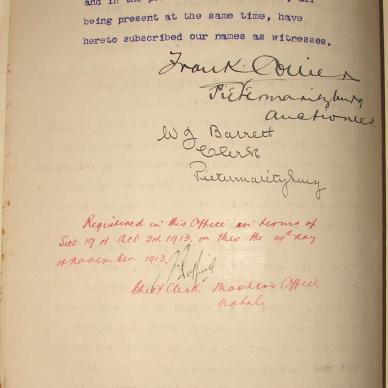 and in the pr
being present at the same time, have
hereto subscribed our names as witnesses.
Frank Collier
Pietermaritzburg
Auctioneer
W J Barrett
Clerk
Pietermaritzburg
Registered in this Office in terms of
Sec 19 of Act 24, 1913, on this the 14th day
of November 1913
Chief Clerk. Masters Office,
Natal.